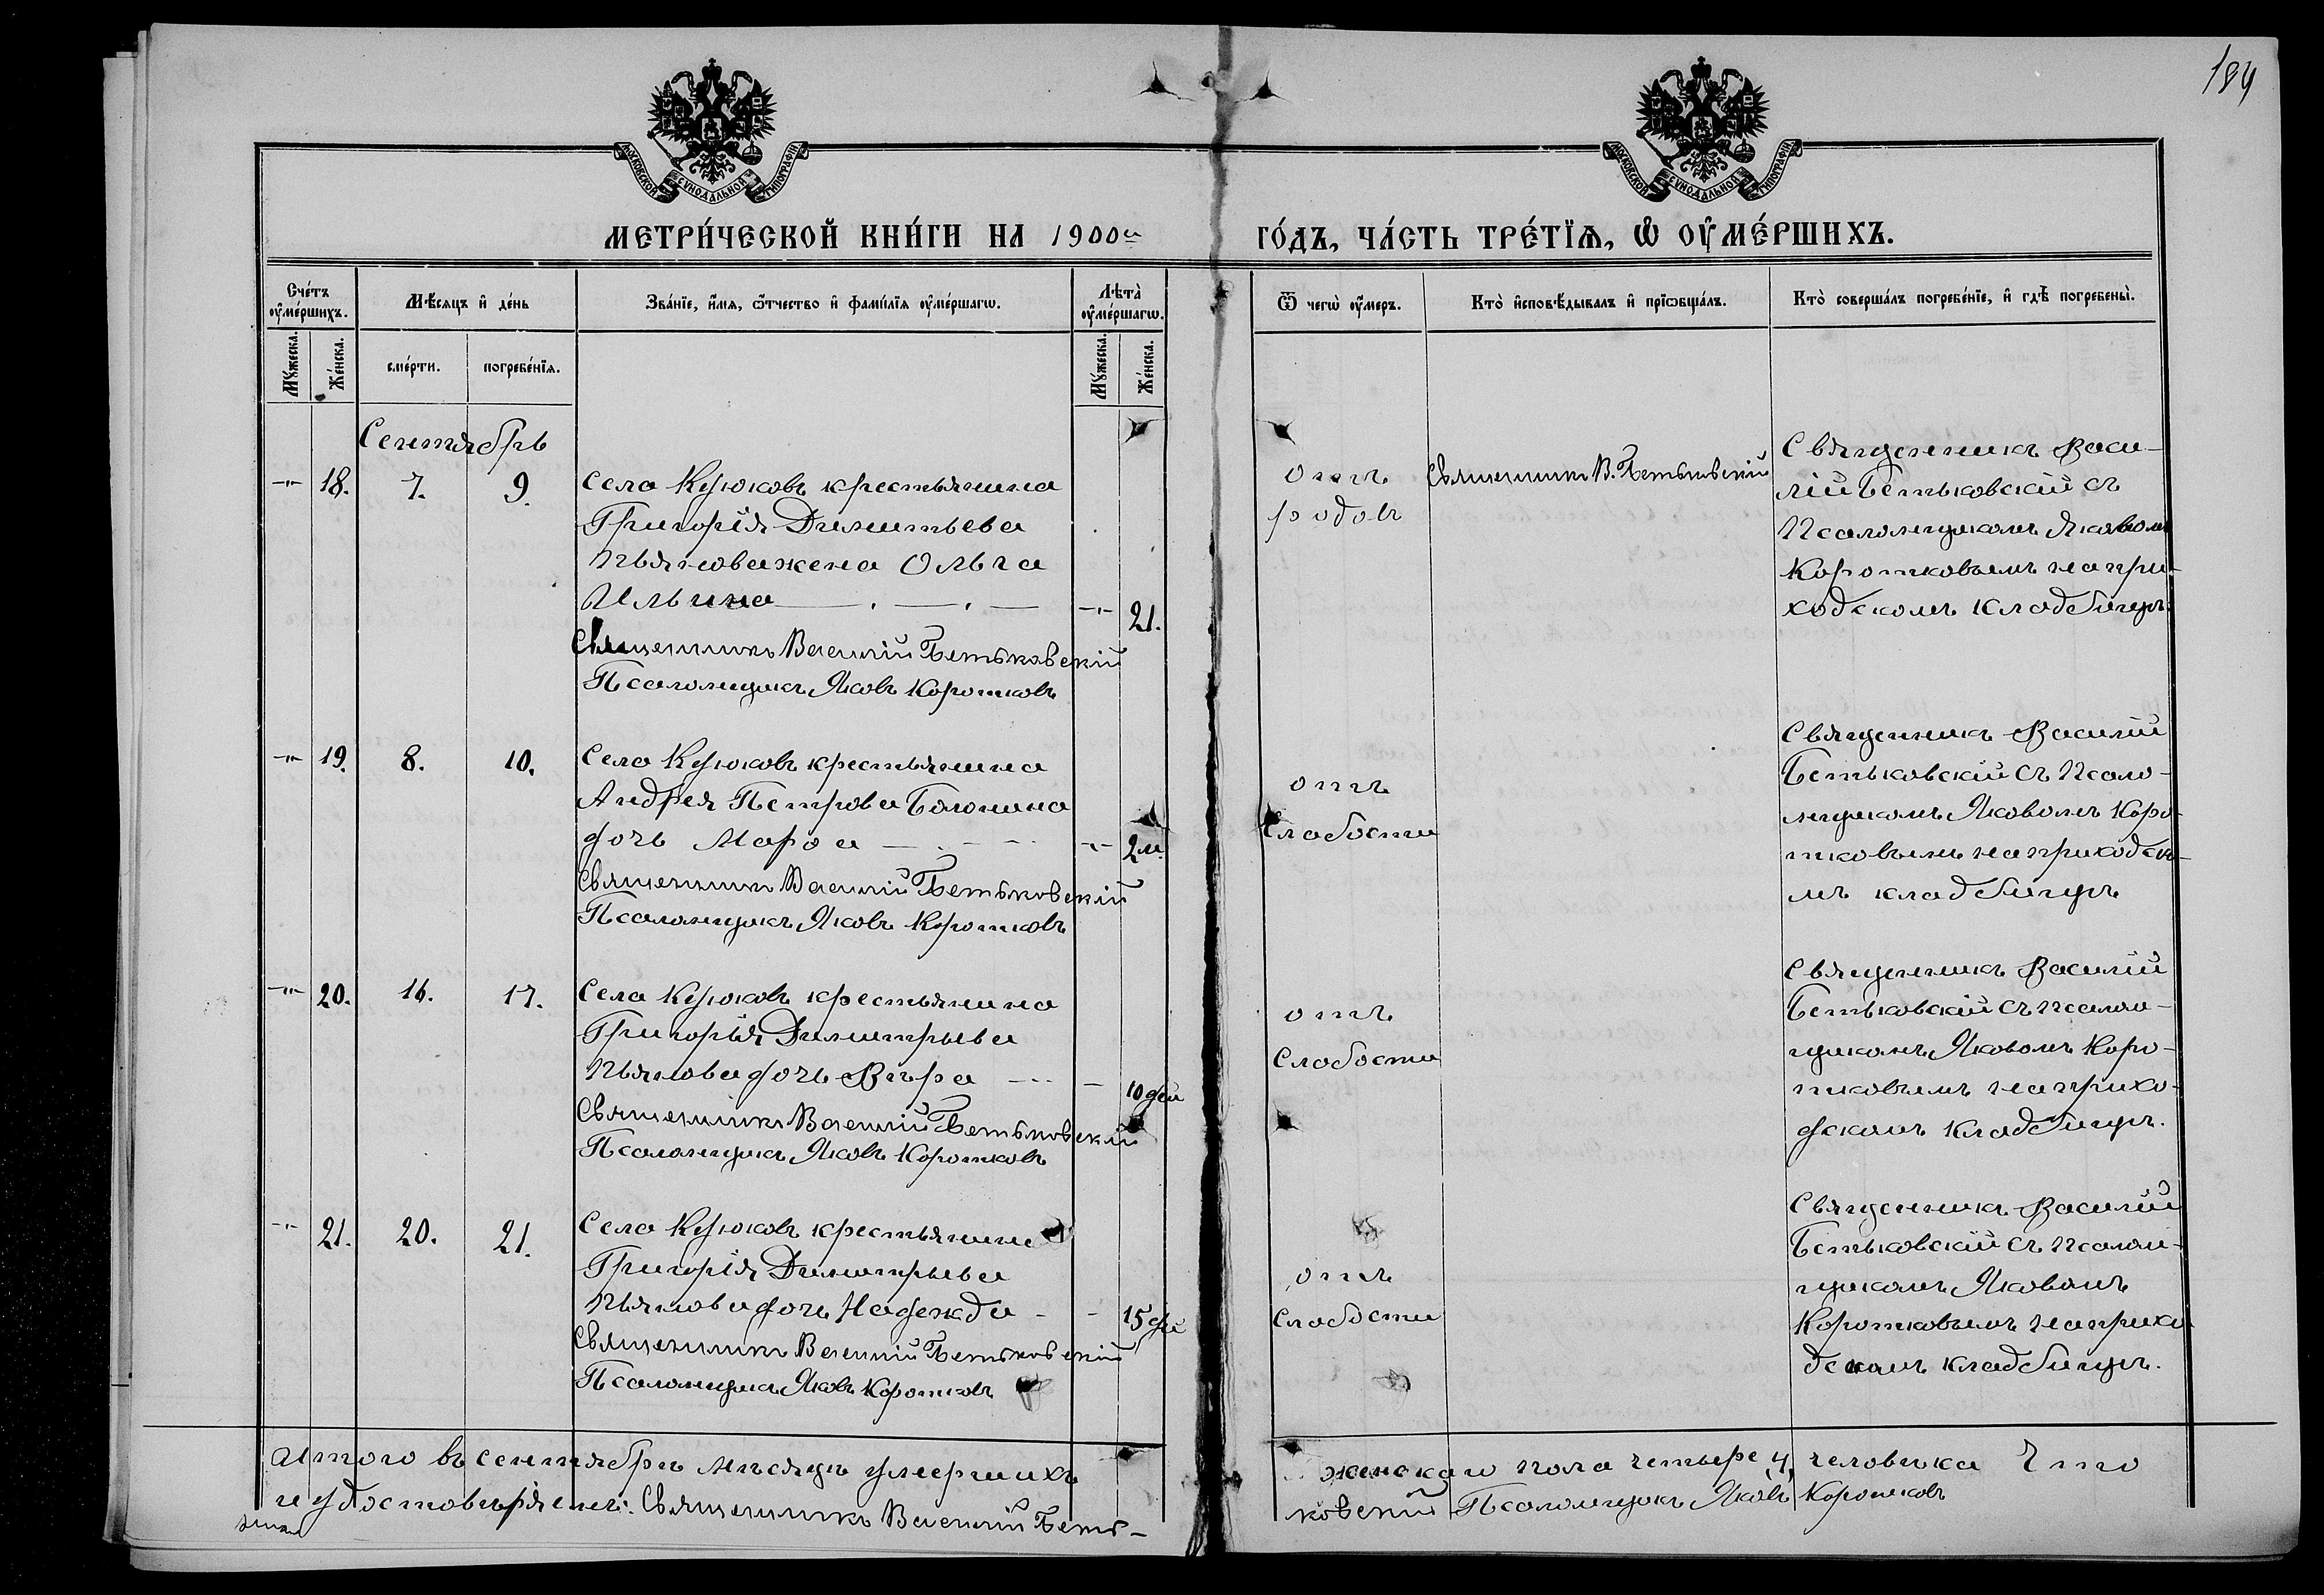 184
МОСКОВСКОЙ СУНОДАЛЬНОЙ ТИПОГРАФІИ
МОСКОВСКОЙ СУНОДАЛЬНОЙ ТИПОГРАФІИ
МЕТРИ́ЧЕСКОЙ КНИ́ГИ НА 1900й
ГО́ДЪ, ЧА́СТЬ ТРЕ́ТЇѦ, Ѡ ОУМЕ́РШИХЪ.
Сче́тъ оуме́ршихъ.
Мѣсяцъ и де́нь
Зва́нїе, и́мя, ѻ́тчество и фами́лїя оуме́ршагѡ.
Лѣта̀ оуме́ршагѡ.
Ѿ чегѡ̀ оу́меръ.
Кто̀ исповѣ́дывалъ и прїѡбща́лъ.
Кто̀ соверша́лъ погребе́нїе, и гдѣ̀ погребены̀.
Му́жеска.
Же́нска.
сме́рти.
погребе́нїя.
Му́жеска.
Же́нска.
Сентябрь
-"- 18. 7. 9.
Села Крюковъ крестьянина
Григорія Димитьева
Пьянова жена Ольга
Ильина -"- 21.
Священникъ Василій Бетьковскій
Псаломщикъ Яковъ Коротковъ
отъ
родовъ
Священникъ В. Бетьковскій
Священникъ Васи-
лій Бетьковскій съ
Псаломщикомъ Яковомъ
Коротковымъ на при-
ходскомъ кладбищѣ.
-"- 19. 8. 10.
Села Крюковъ крестьянина
Андрея Петрова Болонина
дочь Мароа -"- 2 м.
Священникъ Василій Бетьковскій
Псаломщикъ Яковъ Коротковъ
отъ
слабости
Священникъ Василій
Бетьковскій съ Псало-
мщикомъ Яковомъ Коро-
тковымъ на приходско-
мъ кладбищѣ
-"- 20. 16. 17.
Села Крюковъ крестьянина
Григорія Димитрьева
Пьянова дочь Вѣра - 10 дней
Священникъ Василій Бетьковскій
Псаломщикъ Яковъ Коротковъ
отъ
слабости
Священникъ Василій
Бетьковскій съ псалом-
щикомъ Яковомъ Коро-
тковымъ на прихо-
дскомъ кладбищѣ.
-"- 21. 20. 21.
Села Крюковъ крестьянина
Григорія Димитрьева
Пьянова дочь Надежда - 15 дней
Священникъ Василій Бетьковскій
Псаломщикъ Яковъ Коротковъ
отъ
слабости
Священникъ Василій
Бетьковскій съ псалом-
щикомъ Яковомъ
Коротковымъ на прихо
дскомъ кладбищѣ.
Итого въ сентябрѣ мѣсяцѣ умершихъ женскаго пола четыре 4, человѣка Что
и удостовѣряемъ: Священникъ Василій Беть-
ковскій Псаломщикъ Яковъ Коротковъ